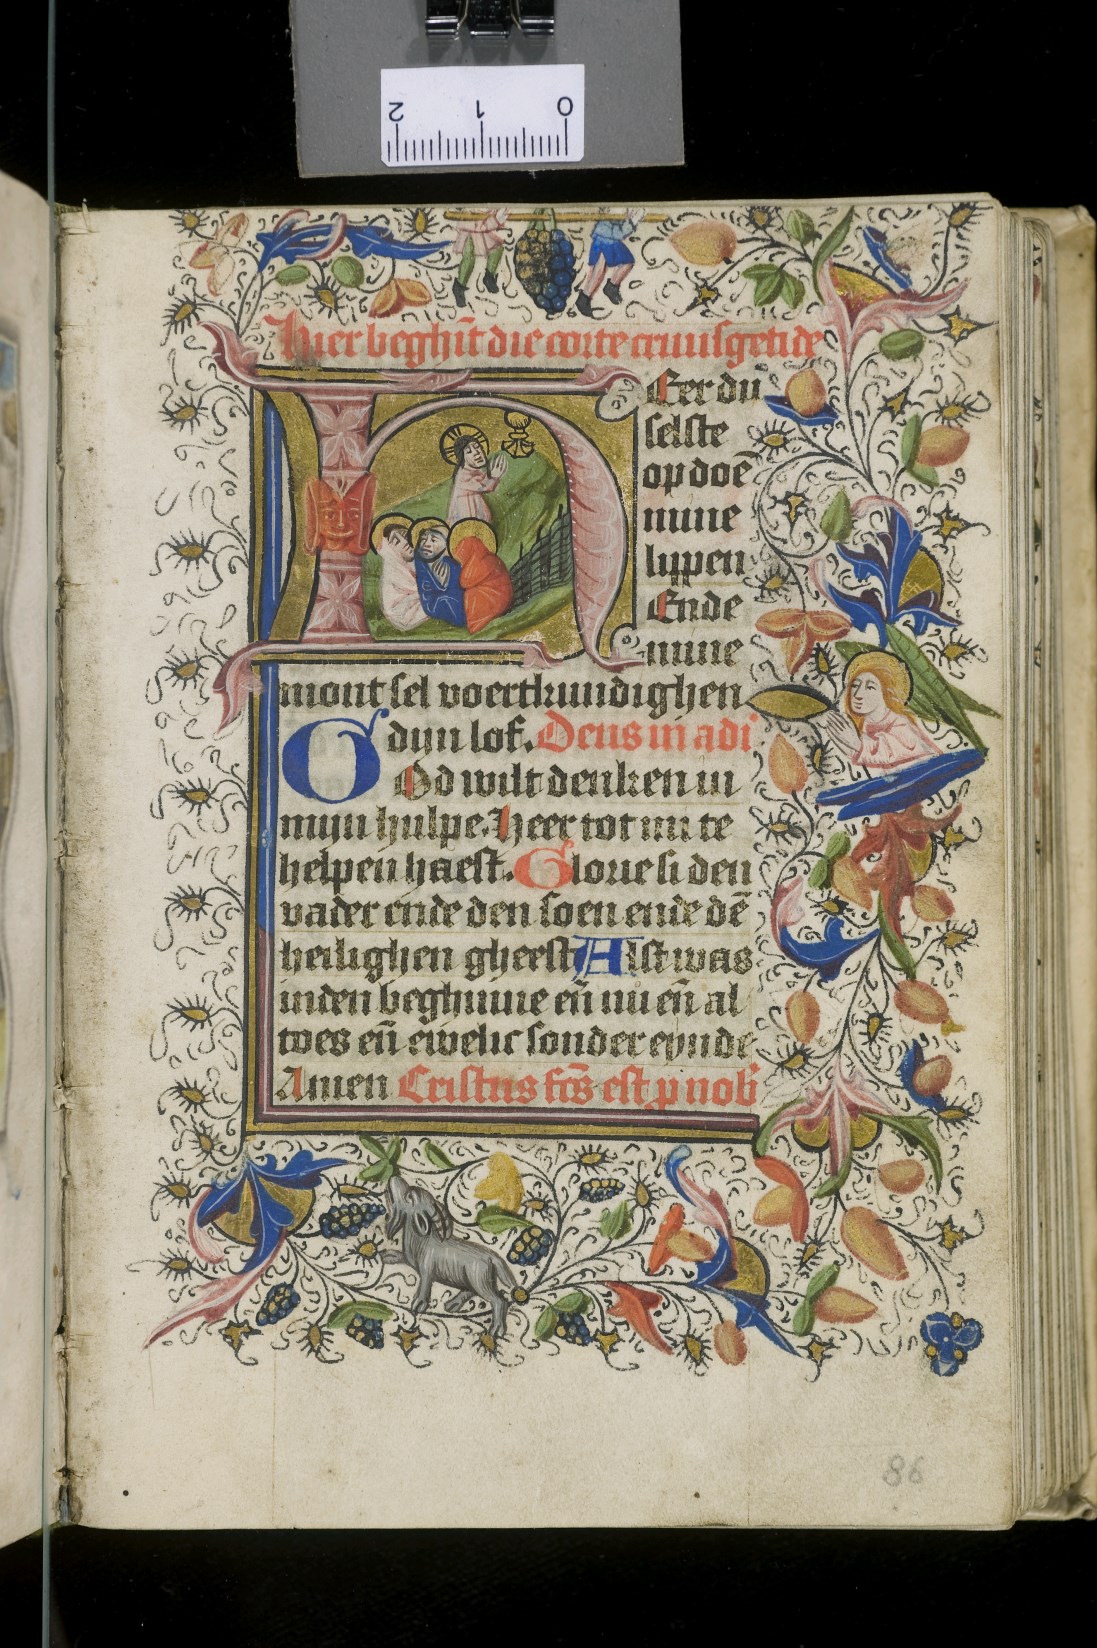 2 1 0
Hier beghīt die corte cruusgetide
HEer du
selste
op doē
mine
lippen
Ende
mine
mont sel voertkundighen
dijn lof. Deus in adi
GOd wilt denken in
mijn hulpe. Heer tot mi te
helpen haest. Glorie si den
vader ende den soen ende dē
heilighen gheest Alst was
inden beghinne eñ nu eñ al
toes eñ ewelic sonder eynde
Amen Cristus fc̄s est p nob
86